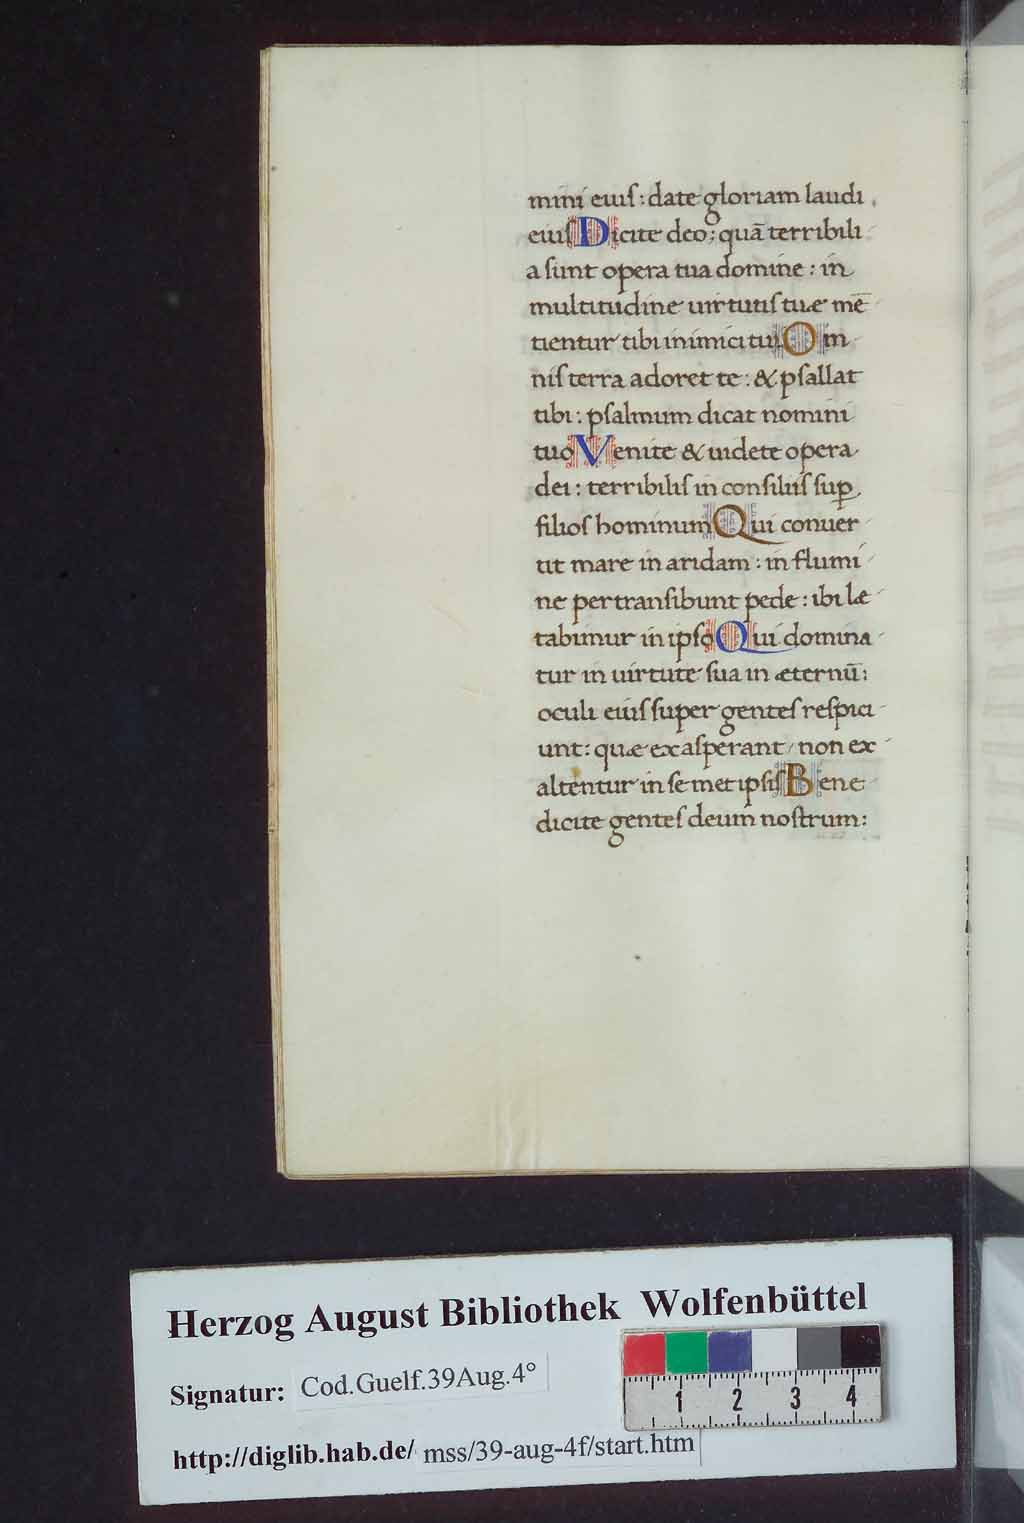 mini eiuſ: date gloriam laudi
eiuſ Dicite deo: quā terribili
a ſunt opera tua domine: in
multitudine uirtutiſ tuæ mē
tientur tibi inimici tui. Om
niſ terra adoret te: & pſallat
tibi: pſalmum dicat nomini
tuo Venite & uidete opera
dei: terribiliſ in conſiliiſ ſuꝑ
filioſ hominum Qui conuer
tit mare in aridam: in flumi
ne pertranſibunt pede: ibi læ
tabimur in ipſo Qui domina
tur in uirtute ſua in æternū:
oculi eiuſ ſuper genteſ reſpici
unt: quæ exaſperant, non ex
altentur in ſe met ipſiſ Bene
dicite genteſ deum noſtrum:
Herzog August Bibliothek Wolfenbüttel
Signatur: Cod.Guelf.39Aug.4°
1 2 3 4
http://diglib.hab.de/ mss/39-aug-4f/start.htm